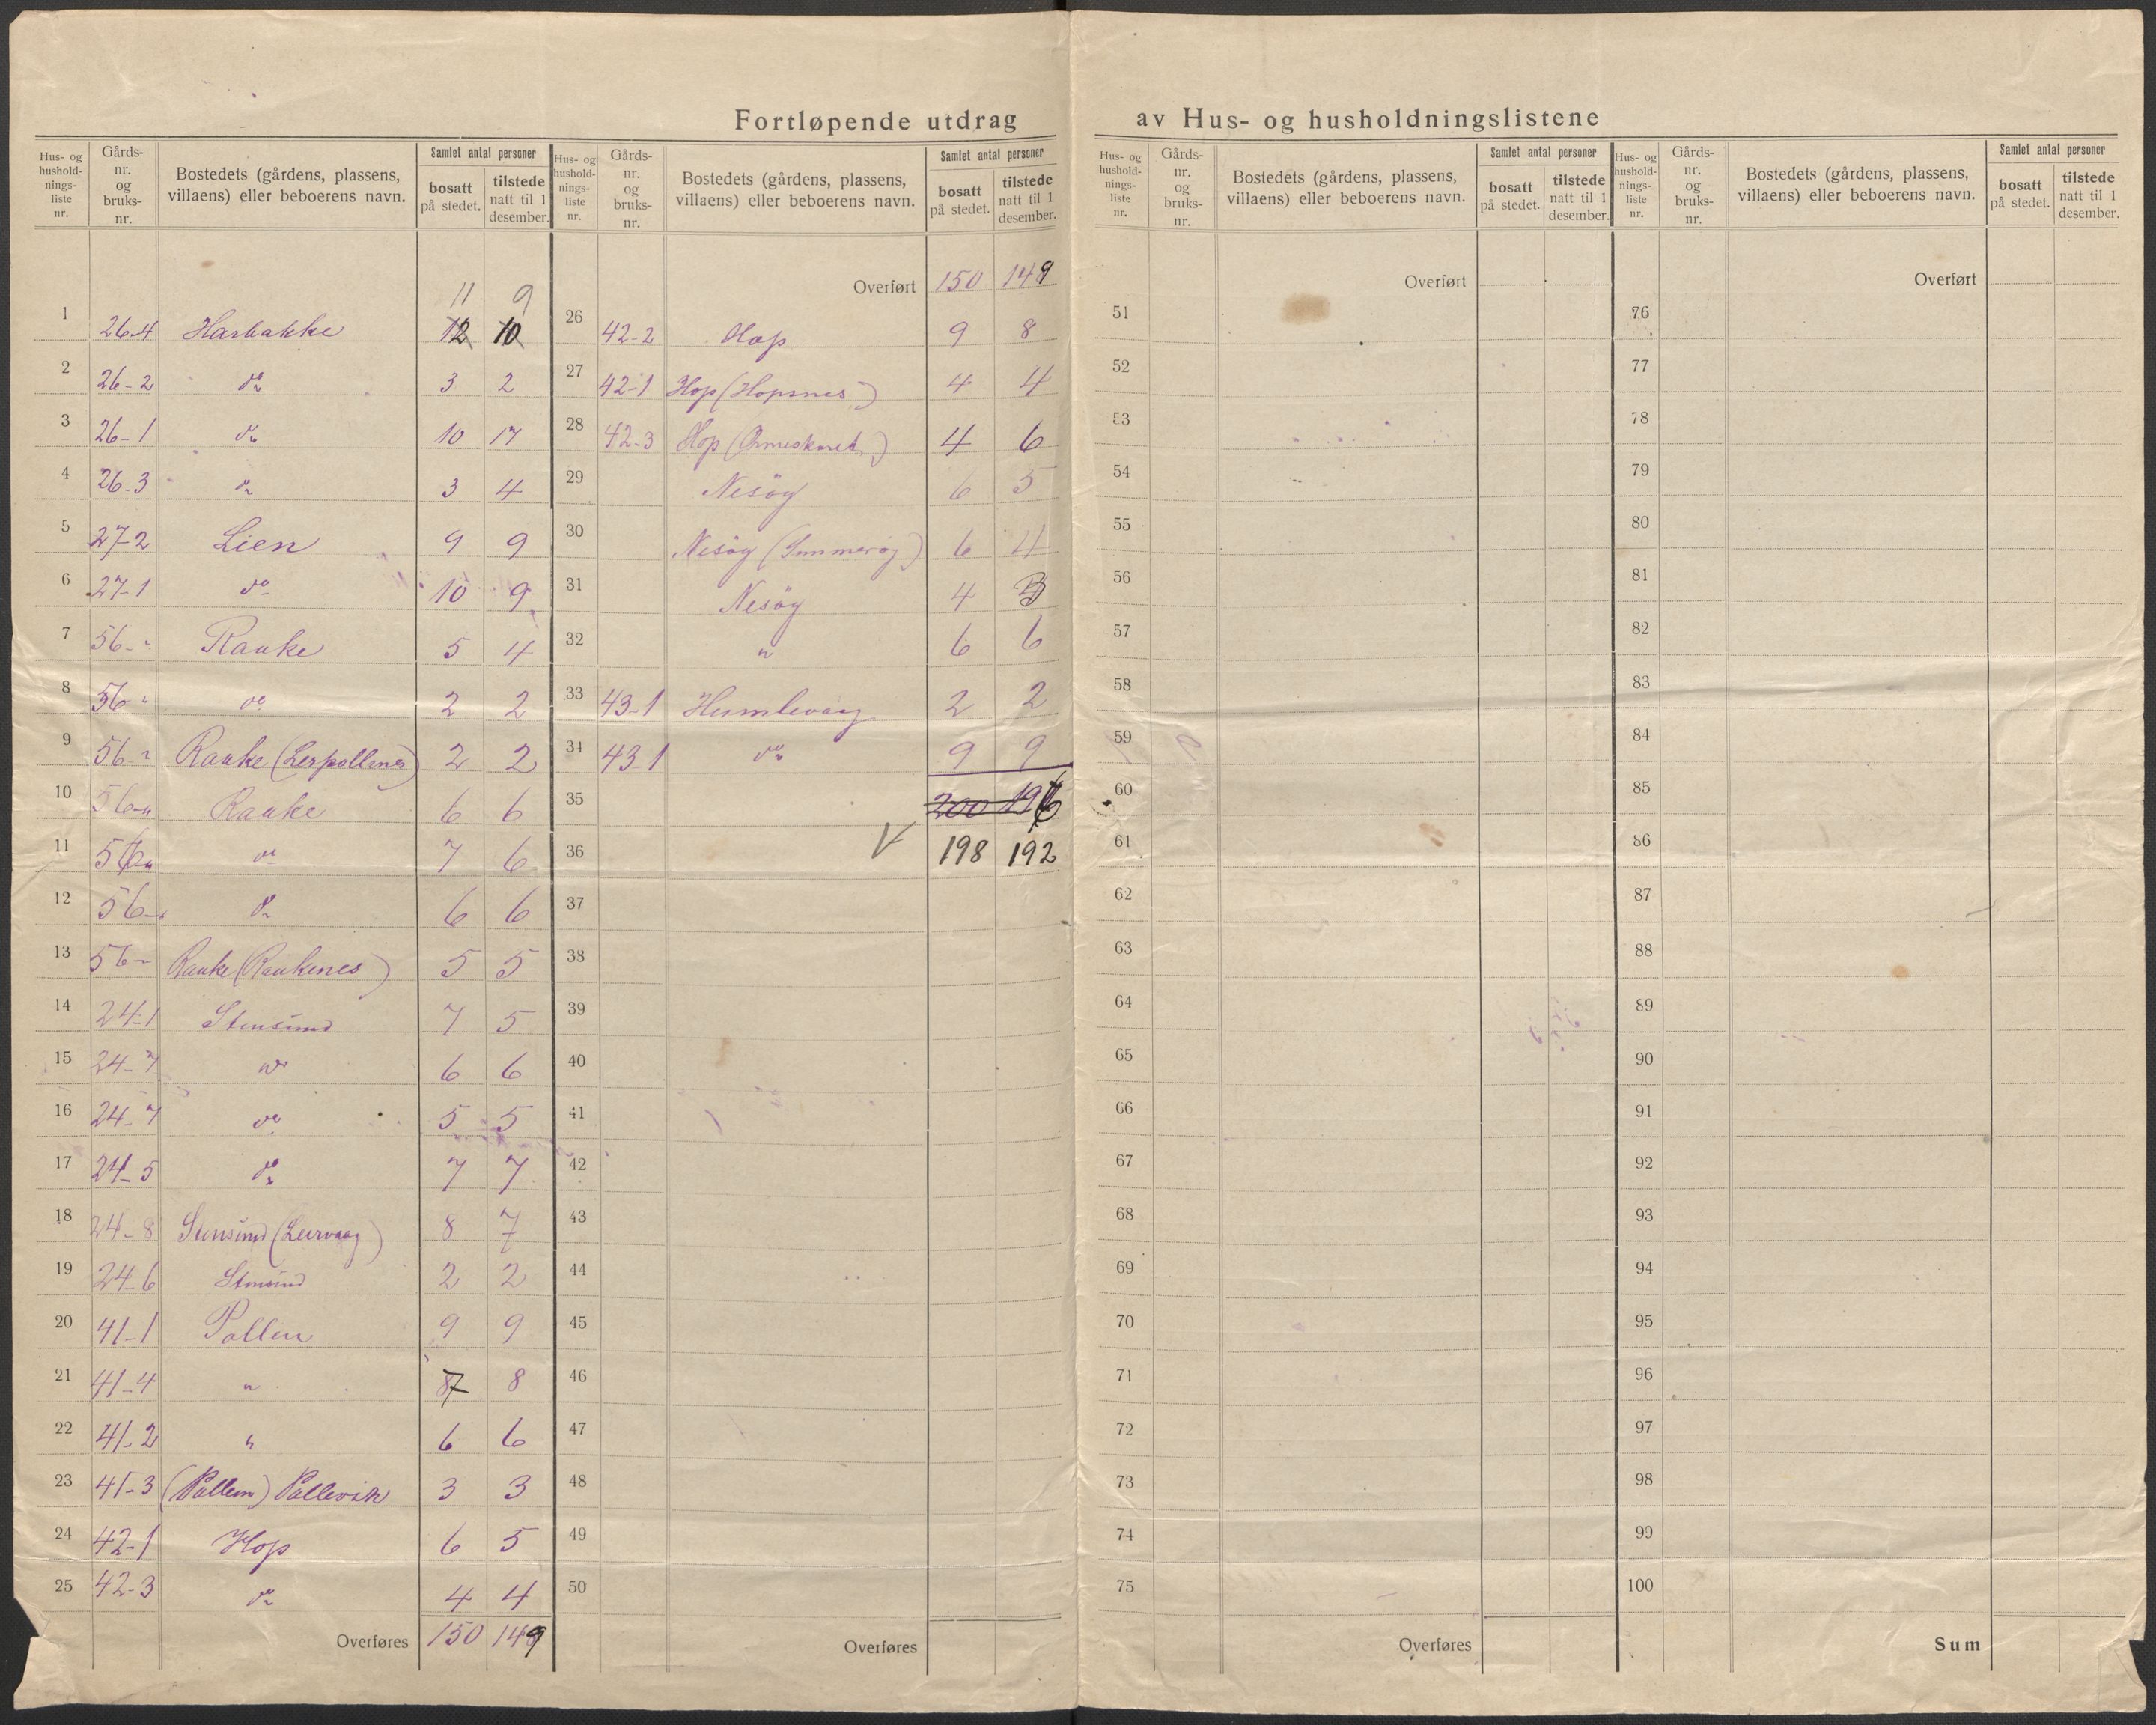 Fortløpende utdrag av Hus- og husholdningslistene
Hus- og husholdningsliste nr. | Gårdsnr. og bruksnr. | Bostedets (gårdens, plassens, villaens) eller beboerens navn. | Samlet antal personer | bosatt på stedet. | tilstede natt til 1 desember.
11 9
1 26-4 Harbakke 12 10
2 26-2 do 3 2
3 26-1 do 10 17
4 26-3 do 3 4
5 27-2 Lien 9 9
6 27-1 do 10 9
7 56-" Rauke 5 4
8 56 " do 2 2
9 56-" Rauke (Lerpollenes) 2 2
10 56-" Rauke 6 6
11 56-" do 7 6
12 56- do 6 6
13 56-" Rauke (Raukenes) 5 5
14 24-1 Stensund 7 5
15 24-7 do 6 6
16 24-7 do 5 5
17 24-5 do 7 7
18 24-8 Stensund (Leirvaag) 8 7
19 24-6 Stensund 2 2
20 41-1 Pollen 9 9
21 41-4 " 7 8
22 41-2 " 6 6
23 41-3 (Pollen) Pollevik 3 3
24 42-1 Hop 6 5
25 42-3 do 4 4
Overføres 150 149
Hus- og husholdningsliste nr. | Gårdsnr. og bruksnr. | Bostedets (gårdens, plassens, villaens) eller beboerens navn. | Samlet antal personer | bosatt på stedet. | tilstede natt til 1 desember.
Overført 150 149
26 42-2 Hop 9 8
27 42-1 Hop (Hopsnes) 4 4
28 42-3 Hop 4 6
29 Nesöy 6 5
30 Nesöy 6 4
31 Nesöy 4 3
32 " 6 6
33 43-1 Humlevaag 2 2
34 43-1 do 9 9
35 200 196
36 198 192
37
38
39
40
41
42
43
44
45
46
47
48
49
50
Overføres
Hus- og husholdningsliste nr. | Gårdsnr. og bruksnr. | Bostedets (gårdens, plassens, villaens) eller beboerens navn. | Samlet antal personer | bosatt på stedet. | tilstede natt til 1 desember.
Overført
51
52
53
54
55
56
57
58
59
60
61
62
63
64
65
66
67
68
69
70
71
72
73
74
75
Overføres
Hus- og husholdningsliste nr. | Gårdsnr. og bruksnr. | Bostedets (gårdens, plassens, villaens) eller beboerens navn. | Samlet antal personer | bosatt på stedet. | tilstede natt til 1 desember.
Overført
76
77
78
79
80
81
82
83
84
85
86
87
88
89
90
91
92
93
94
95
96
97
98
99
100
Sum